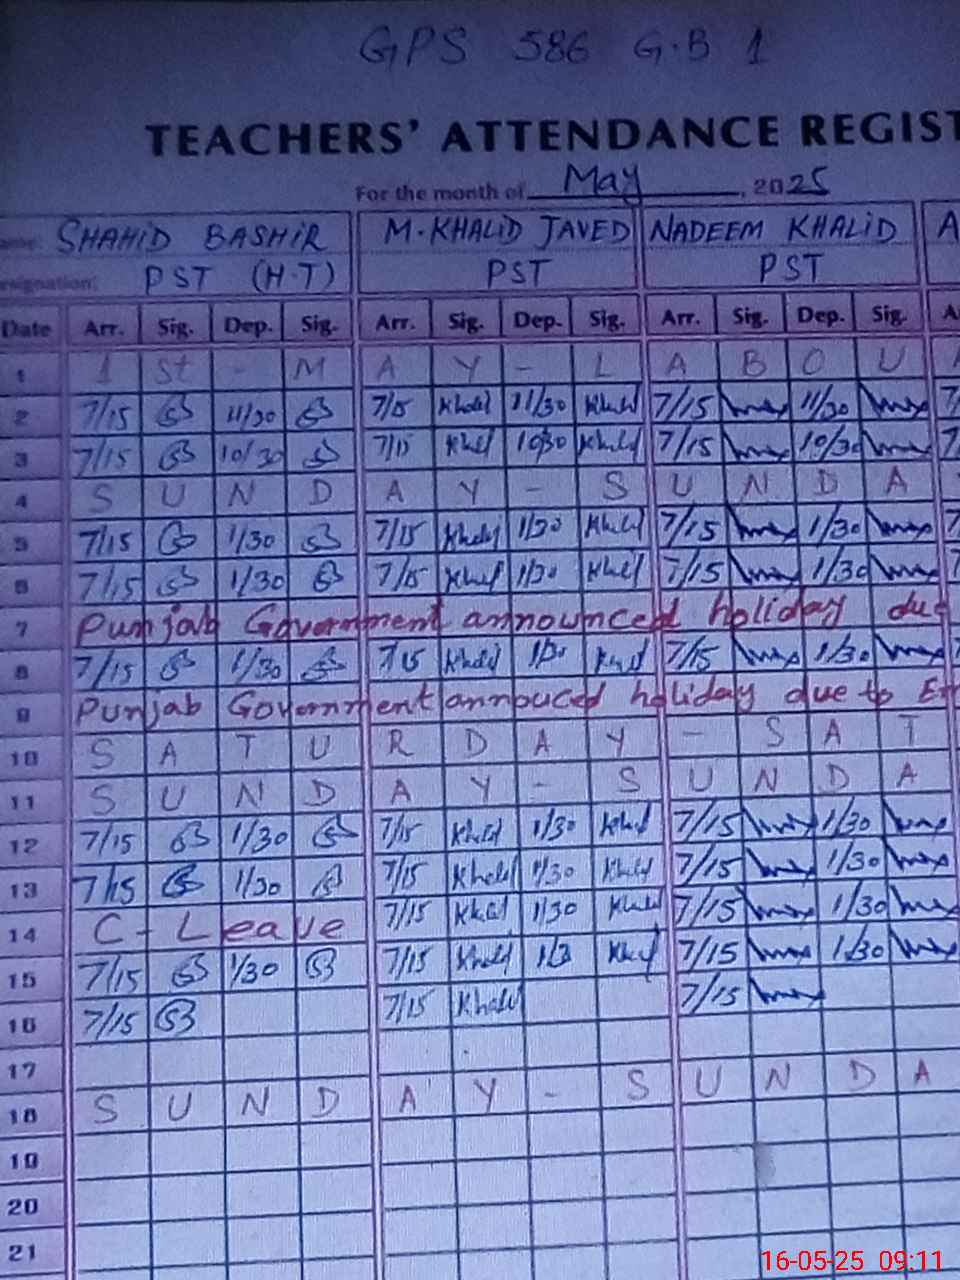 GPS 586 G.B 1
TEACHERS' ATTENDANCE REGIST
For the month of May, 2025
ame: SHAHID BASHIR M.KHALID JAVED NADEEM KHALID A
esignation: PST (H.T) PST PST
Date Arr. Sig. Dep. Sig. Arr. Sig. Dep. Sig. Arr. Sig. Dep. Sig. A
1 1 St - M A Y - L A B O U
2 7/15 11/30 7/15 Khalid 11/30 Khalid 7/15 11/30 7/
3 7/15 10/30 7/15 Khalid 10/30 Khalid 7/15 10/30 7/
4 S U N D A Y - S U N D A
5 7/15 1/30 7/15 Khalid 1/30 Khalid 7/15 1/30
6 7/15 1/30 7/15 Khalid 1/30 Khalid 7/15 1/30
7 Punjab Government announced holiday due
8 7/15 1/30 7/15 Khalid 1/30 Khalid 7/15 1/30
9 Punjab Government annouced holiday due to
10 S A T U R D A Y - S A T
11 S U N D A Y - S U N D A
12 7/15 1/30 7/15 Khalid 1/30 Khalid 7/15 1/30
13 7/15 1/30 7/15 Khalid 1/30 Khalid 7/15 1/30
14 C - Leave 7/15 Khalid 1/30 Khalid 7/15 1/30
15 7/15 1/30 7/15 Khalid 1/3 Khalid 7/15 1/30
16 7/15 7/15 Khalid 7/15
17
18 S U N D A Y - S U N D A
19
20
21
16-05-25 09:11